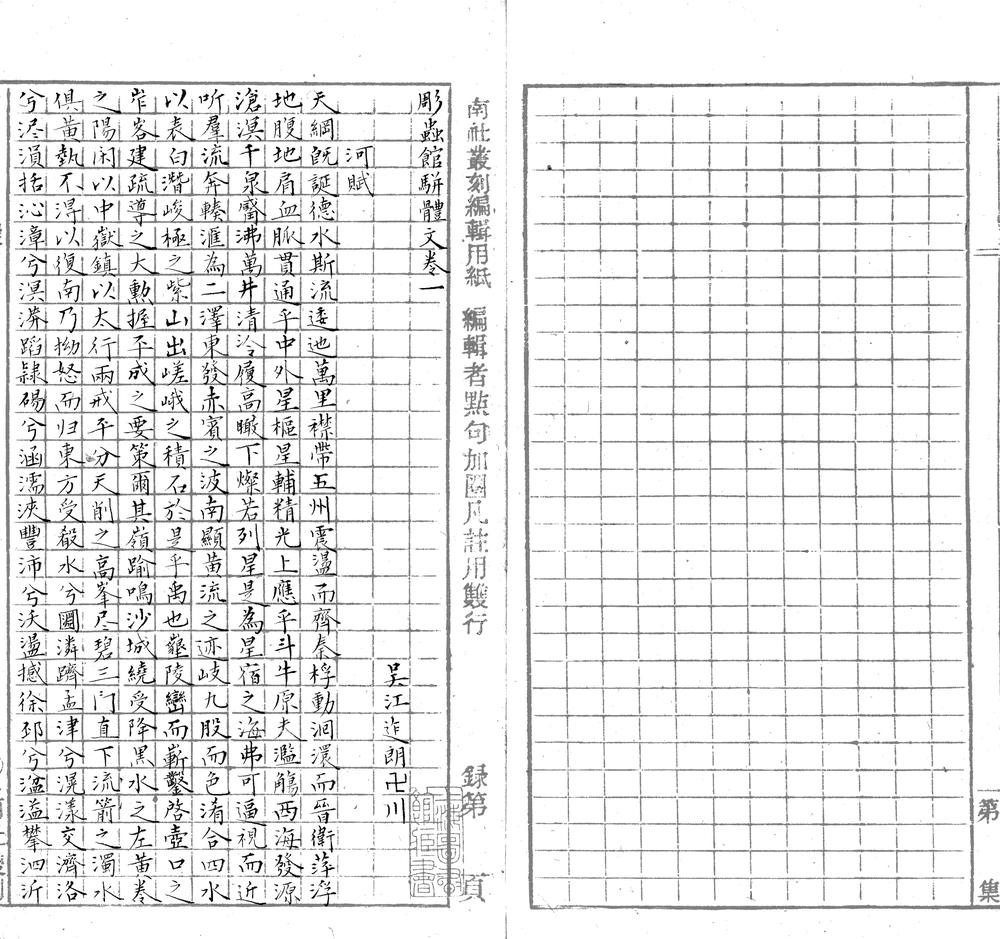 第 集
南社叢刻編輯用紙 編輯者點句加圈凡註用雙行 録第 頁
彫蟲館駢體文卷一
吳江迮朗卍川
河賦
天綱旣誕德水斯流逶迤萬里襟帶五州震盪而齊秦桴動洄澴而晉衛萍浮
地腹地肩血脈貫通乎中外星樞星輔精光上應乎斗牛原夫濫觴西海發源
滄溟千泉齊沸萬井清泠履高瞰下燦若列星是為星宿之海弗可逼視而近
听羣流奔輳滙為二澤東發赤賓之波南顯黃流之迹岐九股而色淆合四水
以表白濳峻極之紫山出嵯峨之積石於是乎禹也鑿陵巒而嶄鑿啓壺口之
岝峉建疏導之大勲握平成之要策爾其嶺踰鳴沙城繞受降黑水之左黃卷
之陽闲以中嶽鎮以太行兩戒平分天削之高峯尽碧三门直下流箭之濁水
俱黃埶不淂以復南乃拗怒而归東方受縠水兮圝潾躋孟津兮滉漾交濟洛
兮浕溳括沁漳兮溟漭蹈隷碭兮涵濡浹豐沛兮沃盪撼徐邳兮湓溢攀泗沂